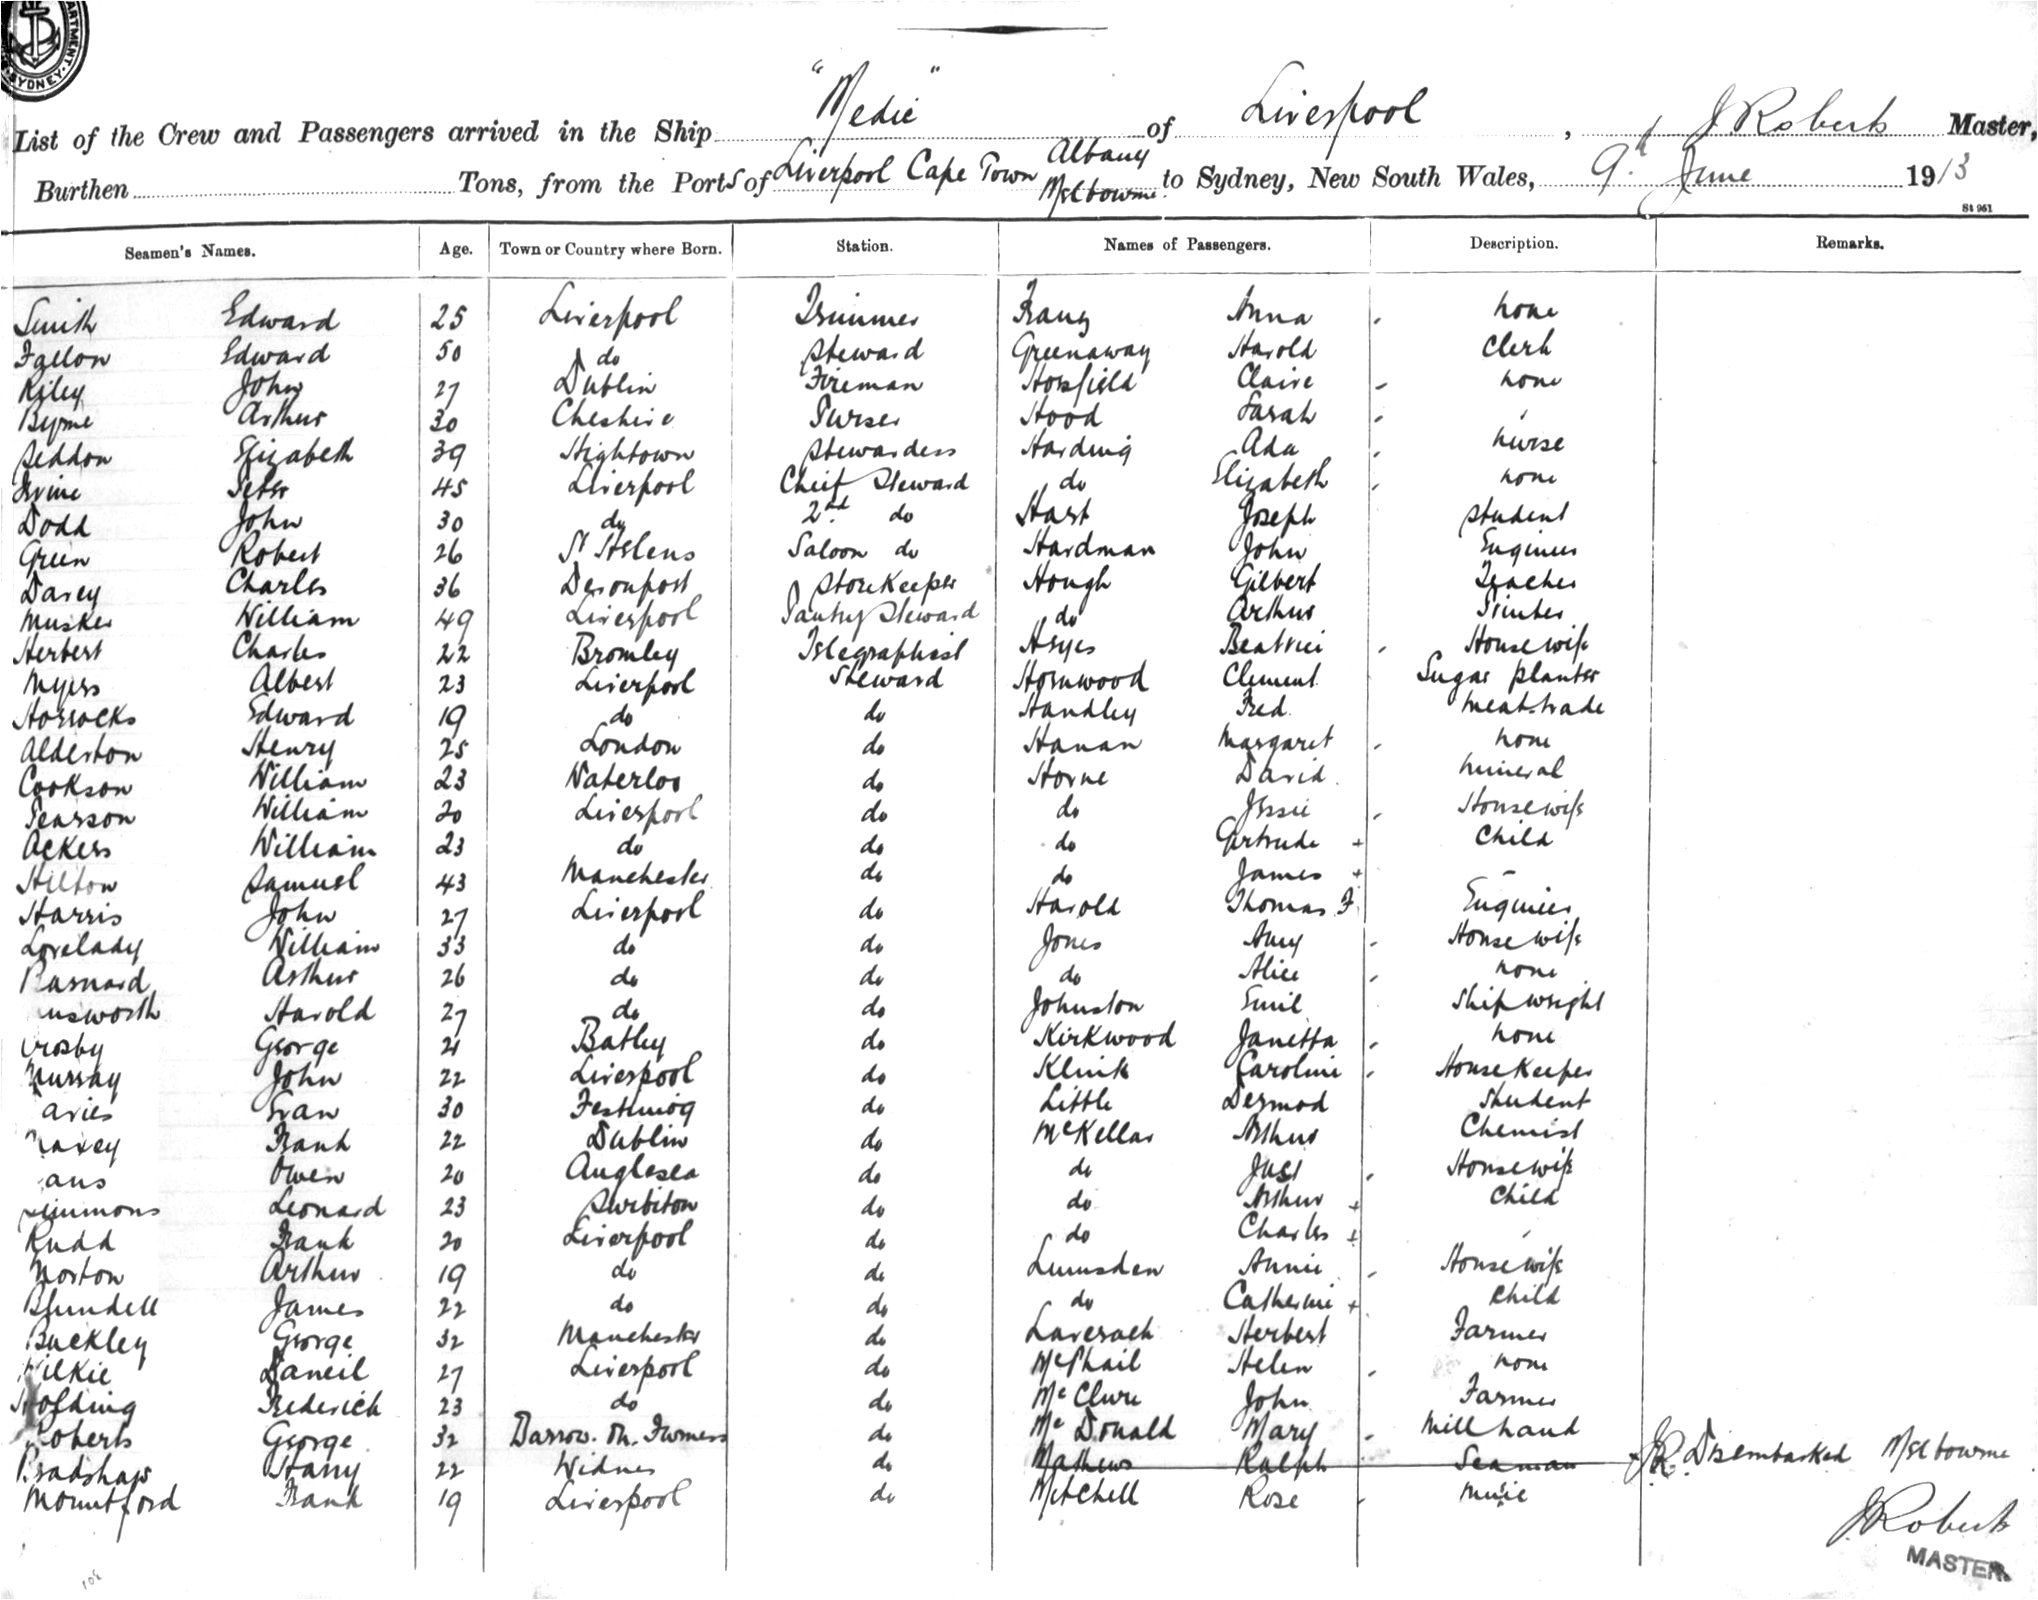 ARTMENT. SYDNEY.
List of the Crew and Passengers arrived in the Ship "Medic" of Liverpool, J Roberts Master,
Burthen Tons, from the Ports of Liverpool Cape Town Albany Melbourne to Sydney, New South Wales, 9th June 1913
St 961
Seamen's Names. Age. Town or Country where Born. Station. Names of Passengers. Description. Remarks.
Smith Edward 25 Liverpool Trimmer Franz Anna , none
Fallon Edward 50 do Steward Greenaway Harold Clerk
Riley John 27 Dublin Fireman Horsfield Claire , none
Byrne Arthur 30 Cheshire Purser Hood Sarah , ,
Seddon Elizabeth 39 Hightown Stewardess Harding Ada , nurse
Irvine Peter 45 Liverpool Chief Steward do Elizabeth , none
Dodd John 30 do 2nd do Hart Joseph Student
Green Robert 26 St Helens Saloon do Hardman John Engineer
Davey Charles 36 Devonport Storekeeper Hough Gilbert Teacher
Musker William 49 Liverpool Pantry Steward do Arthur
Herbert Charles 22 Bromley Telegraphist Heyes Beatrice , Housewife
Myers Albert 23 Liverpool Steward Hornwood Clement Sugar planter
Horrocks Edward 19 do do Handley Fred. meat-trade
Alderton Henry 25 London do Hanan Margaret , none
Cookson William 23 Waterloo do Horne David mineral
Pearson William 20 Liverpool do do Jessie , Housewife
Ackers William 23 do do do Gertrude + Child
Hilton Samuel 43 Manchester do do James + -
Harris John 27 Liverpool do Harold Thomas F Engineer
Lovelady William 33 do do Jones Amy , Housewife
Barnard Arthur 26 do do do Alice , none
nsworth Harold 27 do do Johnston Emil Shipwright
Crosby George 21 Batley do Kirkwood Janetta , none
Murray John 22 Liverpool do Klink Caroline , Housekeeper
avies Evan 30 Festiniog do Little Dermod Student
Frank 22 Dublin do McKellar Arthur Chemist
ans Owen 20 Anglesea do do , Housewife
Simmons Leonard 23 Surbiton do do Arthur + Child
Rudd Frank 20 Liverpool do do Charles + ,
Norton Arthur 19 do do Lumsden Annie , Housewife
Blundell James 22 do do do Catherine + Child
Buckley George 32 Manchester do Laverack Herbert Farmer
Wilkie Daneil 27 Liverpool do McPhail Helen , none
Holding Frederick 23 do do McClure John Farmer
Roberts George 32 Barrow. On. Furness do McDonald Mary , Mill hand
Bradshaw Harry 22 Widnes do Mathews Ralph Seaman JR. Disembarked Melbourne
Mountford Frank 19 Liverpool do Mitchell Rose , music
J Roberts
MASTER.